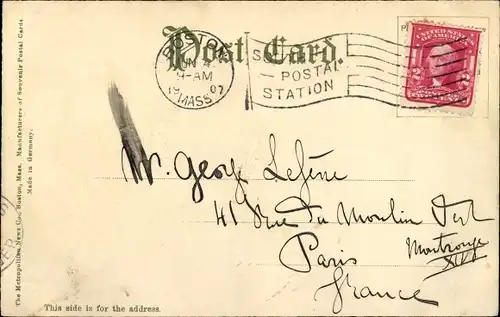 Post Card.
BOSTON
JUN 4
9-AM
1907
MASS
POSTAL
STATION
UNITED STATES
OF AMERICA
2 2
Mr. George Lefène
41 Rue du Moulin Vert
Paris
Montrouge
XIV
France
The Metropolitan News Co., Boston, Mass. Manufacturers of Souvenir Postal Cards.
Made in Germany.
This side is for the address.